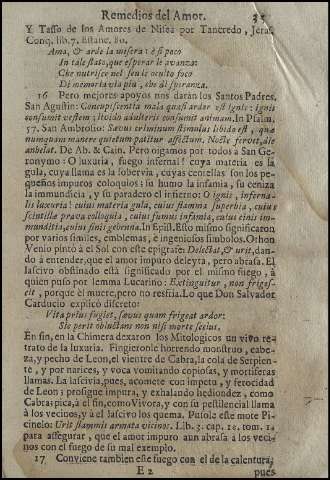 Remedios del Amor. 35
Y Tasso de los Amores de Nisea por Tancredo, Jeru.
Conq. lib. 7. Estanc. 80.
Ama, & arde la misera: è sì poco
In tale stato, que esperar le avanza:
Che nutrisce nel seu le oculto foco
Di memoria via più, che di speranza.
16 Pero mejores apoyos nos darán los Santos Padres.
San Agustin: Concupiscentia mala quasi ardor est ignis: ignis
consumit vestem; libido adulteris consumit animam. In Psalm.
57. San Ambrosio: Sævus criminum stimulus libido est, quæ
numquam manere quietum patitur affectum. Nocte fervet, die
anhelat. De Ab. & Cain. Pero oigamos por todos à San Ge-
ronymo: O luxuria, fuego infernal! cuya materia es la
gula, cuya llama es la sobervia, cuyas centellas son los pe-
queños impuros coloquios: su humo la infamia, su ceniza
la inmundicia, y su paradero el infierno: O ignis, inferna-
lis luxuria! cuius materia gula, cuius flamma superbia, cuius
scintilla prava colloquia, cuius fumus infamia, cuius cinis im-
munditia, cuius finis gehenna. In Epist. Esto mismo significaron
por varios similes, emblemas, è ingeniosos simbolos. Othon
Venio pintò à el Sol con este epigrafe: Delectat, & urit, dan-
do à entender, que el amor impuro deleyta, pero abrasa. El
lascivo obstinado està significado por el mismo fuego, à
quien puso por lemma Lucarino: Extinguitur, non friges-
cit, porque el muere, pero no resfria. Lo que Don Salvador
Carducio explicò discreto:
Vita prius fugiet, sævus quam frigeat ardor:
Sic perit obluctans non nisi morte scelus.
En fin, en la Chimera dexaron los Mitologicos un vivo re-
trato de la luxuria. Fingieronle horrendo monstruo, cabe-
za, y pecho de Leon, el vientre de Cabra, la cola de Serpien-
te, y por narices, y voca vomitando copiosas, y mortiferas
llamas. La lascivia, pues, acomete con impetu, y ferocidad
de Leon; prosigue impura, y exhalando hediondez, como
Cabra; pica, à el fin, como Vivora, y con su pestilencial llama
à los vecinos, y à el lascivo los quema. Pusole este mote Pi-
cinelo: Urit flammis armata vicinos. Lib. 3. cap. 10. tom. 1.
para assegurar, que el amor impuro aun abrasa à los veci-
nos con el fuego de su mal exemplo.
17 Conviene tambien este fuego con el de la calentura;
E 2 pues